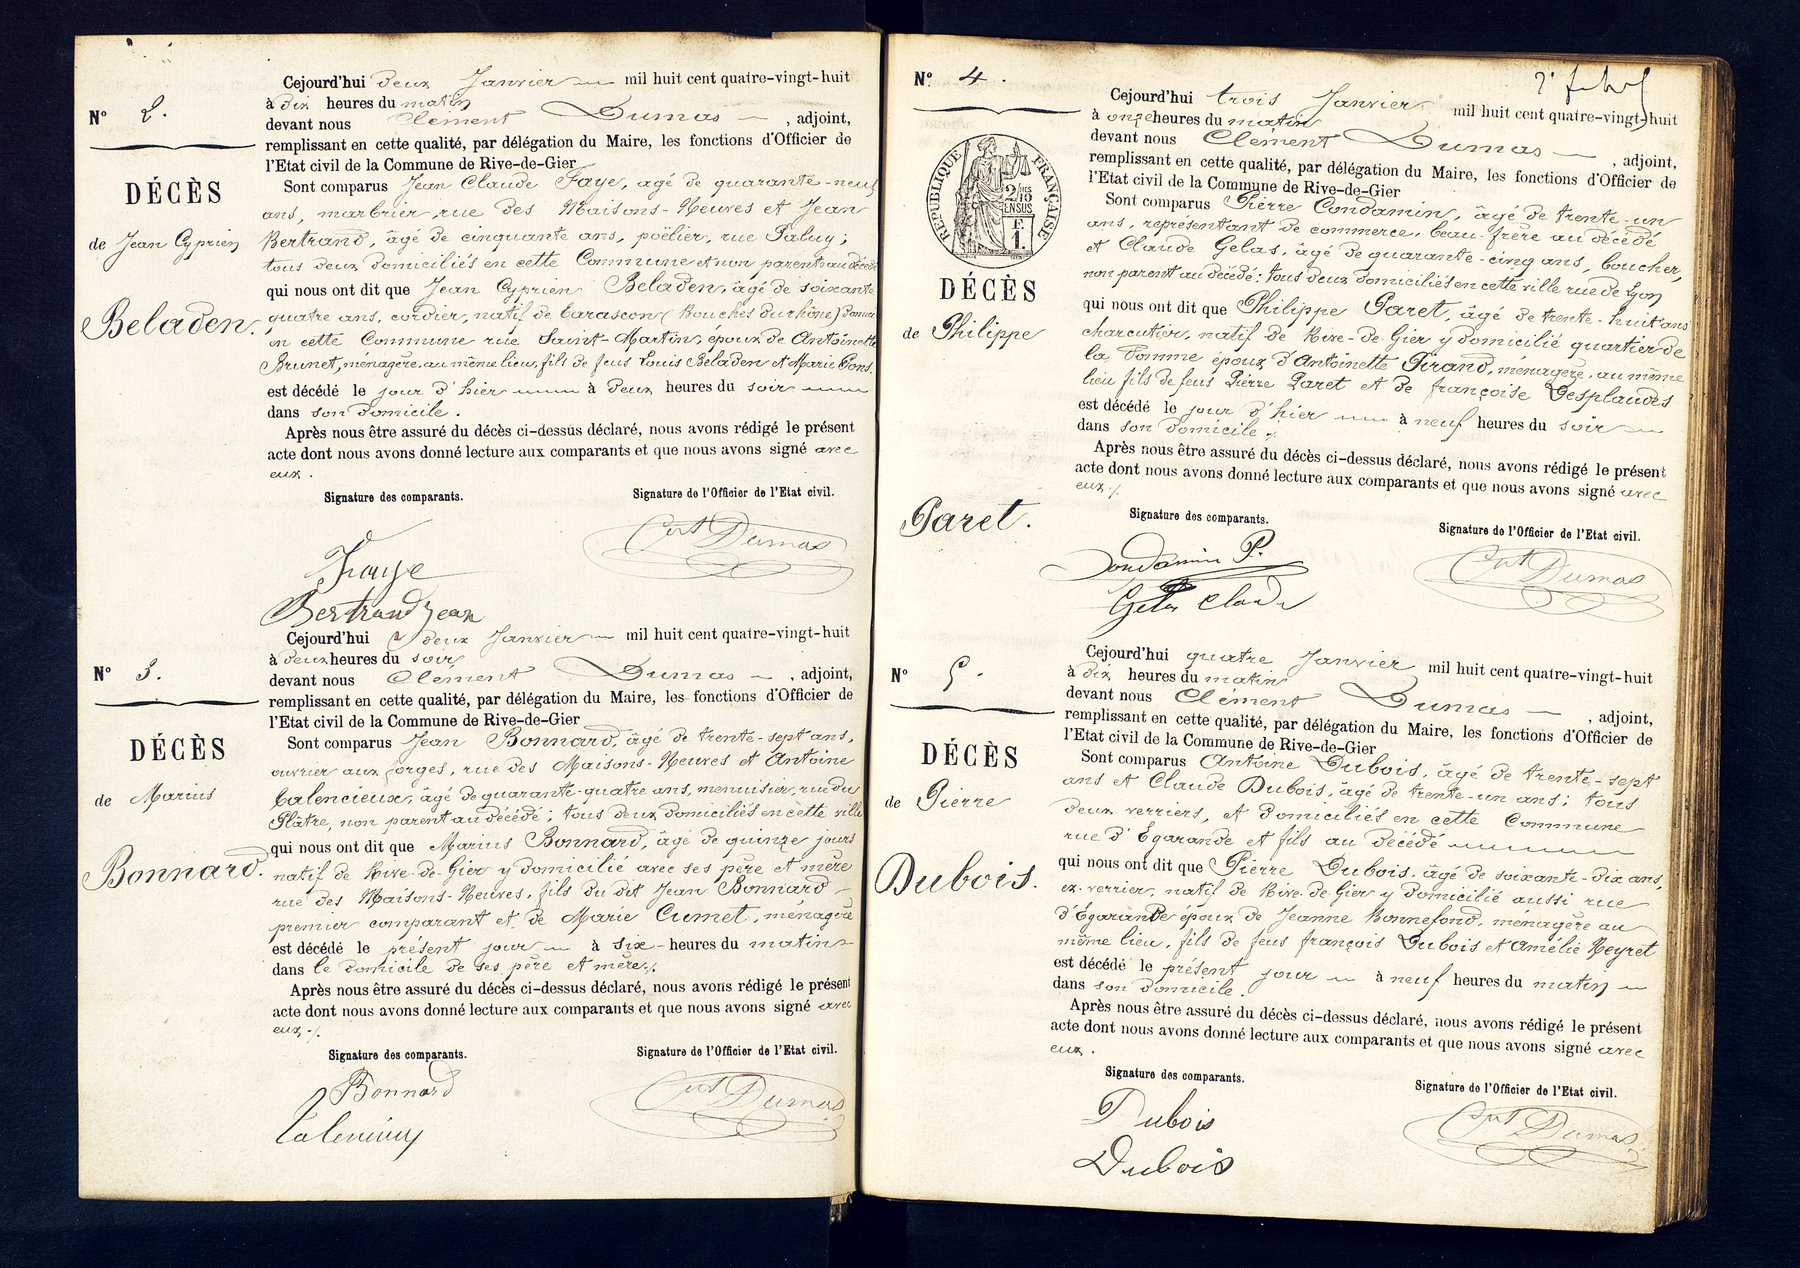 Nº 2.
DÉCÈS
de Jean Cyprien
Beladen.
Cejourd'hui deux Janvier mil huit cent quatre-vingt-huit
à dix heures du matin
devant nous Clément Dumas, adjoint,
remplissant en cette qualité, par délégation du Maire, les fonctions d'Officier de
l'Etat civil de la Commune de Rive-de-Gier
Sont comparus Jean Claude Faye, agé de quarante-neuf
ans, marbrier, rue des Maisons-Neuves et Jean
Bertrand, âgé de cinquante ans, poëlier, rue Paluy;
tous deux domiciliés en cette Commune et non parents au décédé
qui nous ont dit que Jean Cyprien Beladen, âgé de soixante
quatre ans, cordier, natif de Tarascon (Bouches du rhône) domicilié
en cette Commune rue Saint-Martin, époux de Antoinette
Brunet, ménagère, au même lieu, fils de feus Louis Beladen et Marie Pons.
est décédé le jour d'hier à deux heures du soir
dans son domicile.
Après nous être assuré du décès ci-dessus déclaré, nous avons rédigé le présent
acte dont nous avons donné lecture aux comparants et que nous avons signé avec
eux.
Signature des comparants. Signature de l'Officier de l'Etat civil.
Faye
Bertrand Jean
Cnt Dumas
Nº 3.
DÉCÈS
de Marius
Bonnard.
Cejourd'hui deux Janvier mil huit cent quatre-vingt-huit
à deux heures du soir
devant nous Clément Dumas, adjoint,
remplissant en cette qualité, par délégation du Maire, les fonctions d'Officier de
l'Etat civil de la Commune de Rive-de-Gier
Sont comparus Jean Bonnard, âgé de trente-sept ans,
ouvrier aux forges, rue des Maisons-Neuves et Antoine
Calencieux, âgé de quarante-quatre ans, menuisier, rue du
Plâtre, non parent au décédé; tous deux domiciliés en cette ville
qui nous ont dit que Marius Bonnard, âgé de quinze jours
natif de Rive-de-Gier y domicilié avec ses père et mère
rue des Maisons-Neuves, fils du dit Jean Bonnard
premier comparant et de Marie Cumet, ménagère
est décédé le présent jour à six heures du matin
dans le domicile de ses père et mère./.
Après nous être assuré du décès ci-dessus déclaré, nous avons rédigé le présent
acte dont nous avons donné lecture aux comparants et que nous avons signé avec
eux./.
Signature des comparants. Signature de l'Officier de l'Etat civil.
Bonnard
Cnt Dumas
Nº 4.
RÉPUBLIQUE FRANÇAISE
2/10
EN SUS
F
1.
DÉCÈS
de Philippe
Paret.
Cejourd'hui trois Janvier mil huit cent quatre-vingt-huit
à onze heures du matin
devant nous Clément Dumas, adjoint,
remplissant en cette qualité, par délégation du Maire, les fonctions d'Officier de
l'Etat civil de la Commune de Rive-de-Gier
Sont comparus Pierre Condamin, âgé de trente-un
ans, représentant de commerce, beau-frère au décédé
et Claude Gelas, âgé de quarante-cinq ans, boucher,
non parent au décédé: tous deux domiciliés en cette ville rue de Lyon
qui nous ont dit que Philippe Paret, âgé de trente-huit ans
charcutier, natif de Rive-de-Gier y domicilié quartier de
la Pomme époux d'Antoinette Girand, ménagère, au même
lieu fils de feus Pierre Paret et de françoise Desplaudes
est décédé le jour d'hier à neuf heures du soir
dans son domicile./.
Après nous être assuré du décès ci-dessus déclaré, nous avons rédigé le présent
acte dont nous avons donné lecture aux comparants et que nous avons signé avec
eux./.
Signature des comparants. Signature de l'Officier de l'Etat civil.
Condamin P.
Gelas Claude
Cnt Dumas
Nº 5.
DÉCÈS
de Pierre
Dubois.
Cejourd'hui quatre Janvier mil huit cent quatre-vingt-huit
à dix heures du matin
devant nous Clément Dumas, adjoint,
remplissant en cette qualité, par délégation du Maire, les fonctions d'Officier de
l'Etat civil de la Commune de Rive-de-Gier
Sont comparus Antoine Dubois, âgé de trente-sept
ans et Claude Dubois, âgé de trente-un ans; tous
deux verriers, et domiciliés en cette Commune
rue d'Egarande et fils au décédé
qui nous ont dit que Pierre Dubois, âgé de soixante-dix ans,
ex-verrier, natif de Rive-de-Gier y domicilié aussi rue
d'Egarande époux de Jeanne Bonnefond, ménagère au
même lieu, fils de feus françois Dubois et Amélie Neyret
est décédé le présent jour à neuf heures du matin
dans son domicile.
Après nous être assuré du décès ci-dessus déclaré, nous avons rédigé le présent
acte dont nous avons donné lecture aux comparants et que nous avons signé avec
eux.
Signature des comparants. Signature de l'Officier de l'Etat civil.
Dubois
Dubois
Cnt Dumas